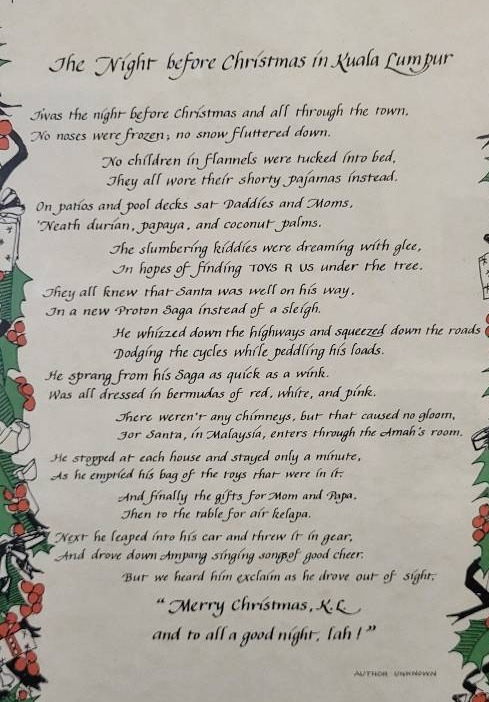 The Night before Christmas in Kuala Lumpur
'Twas the night before Christmas and all through the town,
No noses were frozen; no snow fluttered down.
No children in flannels were tucked into bed,
They all wore their shorty pajamas instead.
On patios and pool decks sat Daddies and Moms,
'Neath durian, papaya, and coconut palms.
The slumbering kiddies were dreaming with glee,
In hopes of finding TOYS R US under the tree.
They all knew that Santa was well on his way,
In a new Proton Saga instead of a sleigh.
He whizzed down the highways and squeezed down the roads
Dodging the cycles while peddling his loads.
He sprang from his Saga as quick as a wink.
Was all dressed in bermudas of red, white, and pink.
There weren't any chimneys, but that caused no gloom,
For Santa, in Malaysia, enters through the Amah's room.
He stopped at each house and stayed only a minute,
As he emptied his bag of the toys that were in it.
And finally the gifts for Mom and Papa,
Then to the table for air kelapa.
Next he leaped into his car and threw it in gear,
And drove down Ampang singing songsof good cheer.
But we heard him exclaim as he drove out of sight,
"Merry Christmas, K.L.
and to all a good night, lah!"
AUTHOR UNKNOWN